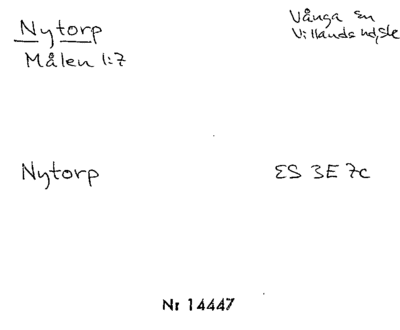 Nytorp
Målen 1:7
Vånga sn
Villands hd, Sk
Nytorp
ES 3E 7c
Nr 14447